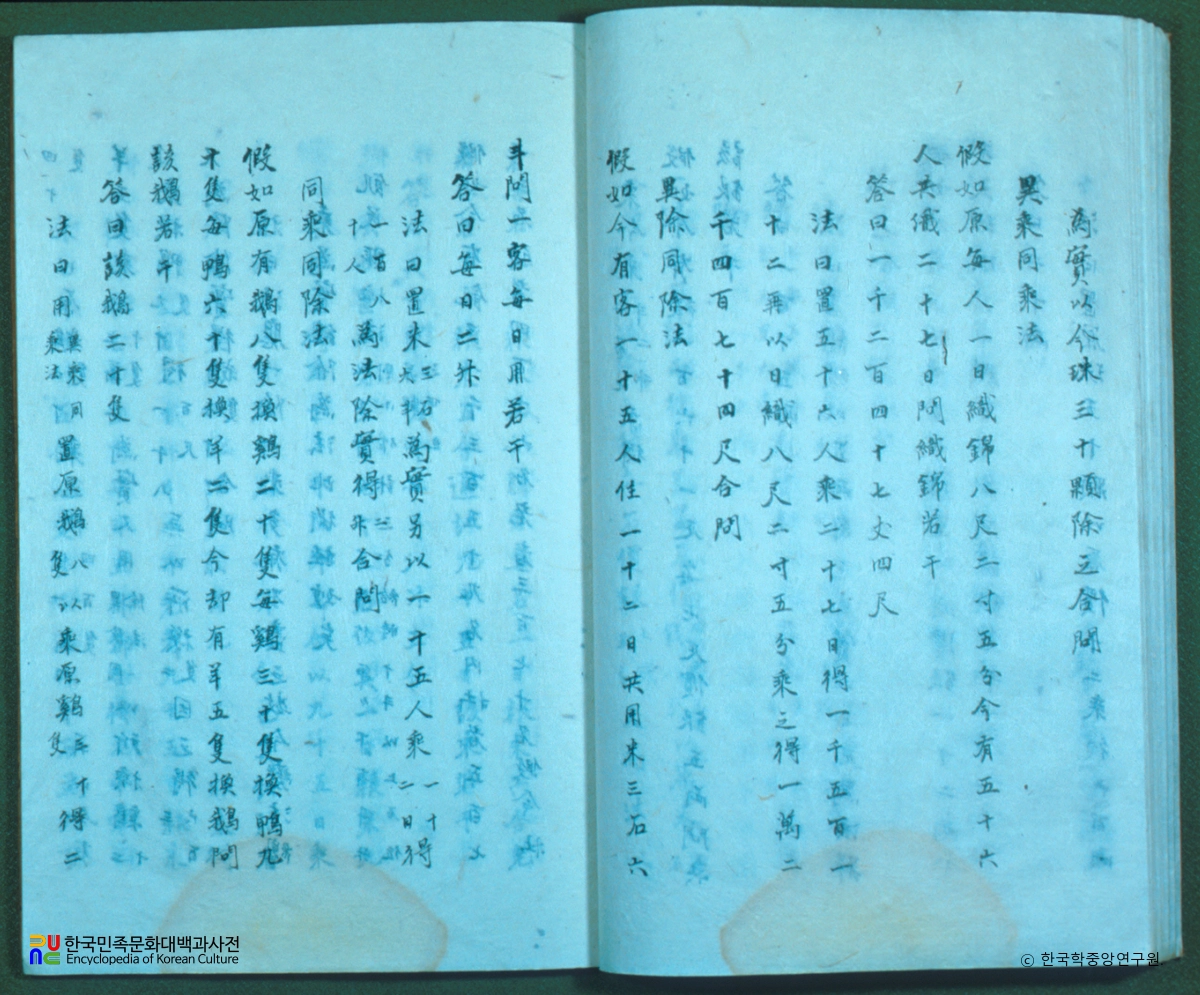 為實以今珠三十顆除之合問
異乘同乘法
假如原每人一日織錦八尺二寸五分今有五十六
人共織二十七日問織錦若干
答曰一千二百四十七丈四尺
法曰置五十六人乘二十七日得一千五百一
十二再以日織八尺二寸五分乘之得一萬二
千四百七十四尺合問
異除同除法
假如今有客一十五人住一十二日共用米三石六
斗問一客每日用若干
答曰每日二升
法曰置米三石六斗為實另以一十五人乘一十二日得
一百八十人為法除實得升合問
同乘同除法
假如原有鵝八隻換鷄二十隻每鷄三十隻換鴨九
十隻每鴨六十隻換羊二隻今却有羊五隻換鵝問
該鵝若干
答曰該鵝二十隻
法曰用異乘同乘法置原鵝八隻以乘原鷄三十隻得二
한국민족문화대백과사전
Encyclopedia of Korean Culture
© 한국학중앙연구원